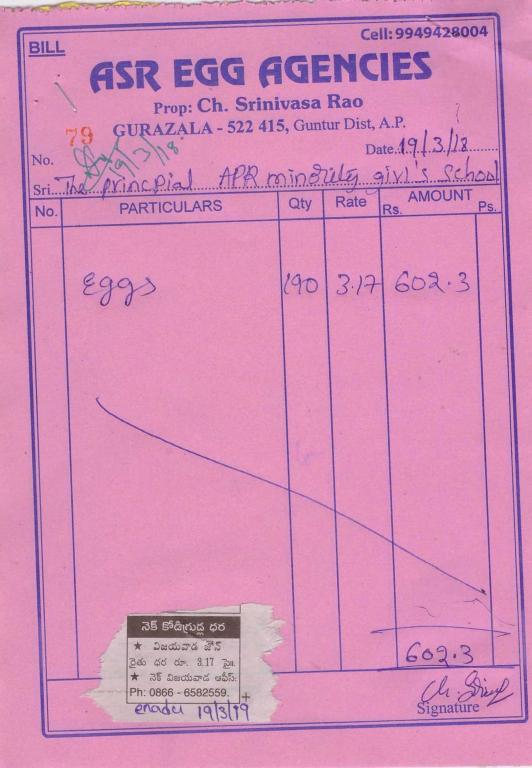 BILL
Cell: 9949428004
ASR EGG AGENCIES
Prop: Ch. Srinivasa Rao
79
GURAZALA - 522 415, Guntur Dist, A.P.
19/3/18
No. Date. 19/3/18
Sri. The principal APR minority girl's school
No. PARTICULARS Qty Rate AMOUNT
Rs. Ps.
Eggs 190 3.17 602.3
602.3
నెక్ కోడిగ్రుడ్ల ధర
★ విజయవాడ జోన్
రైతు ధర రూ. 3.17 పై.
★ నెక్ విజయవాడ ఆఫీస్:
Ph: 0866 - 6582559.
enadu 19/3/19
Signature